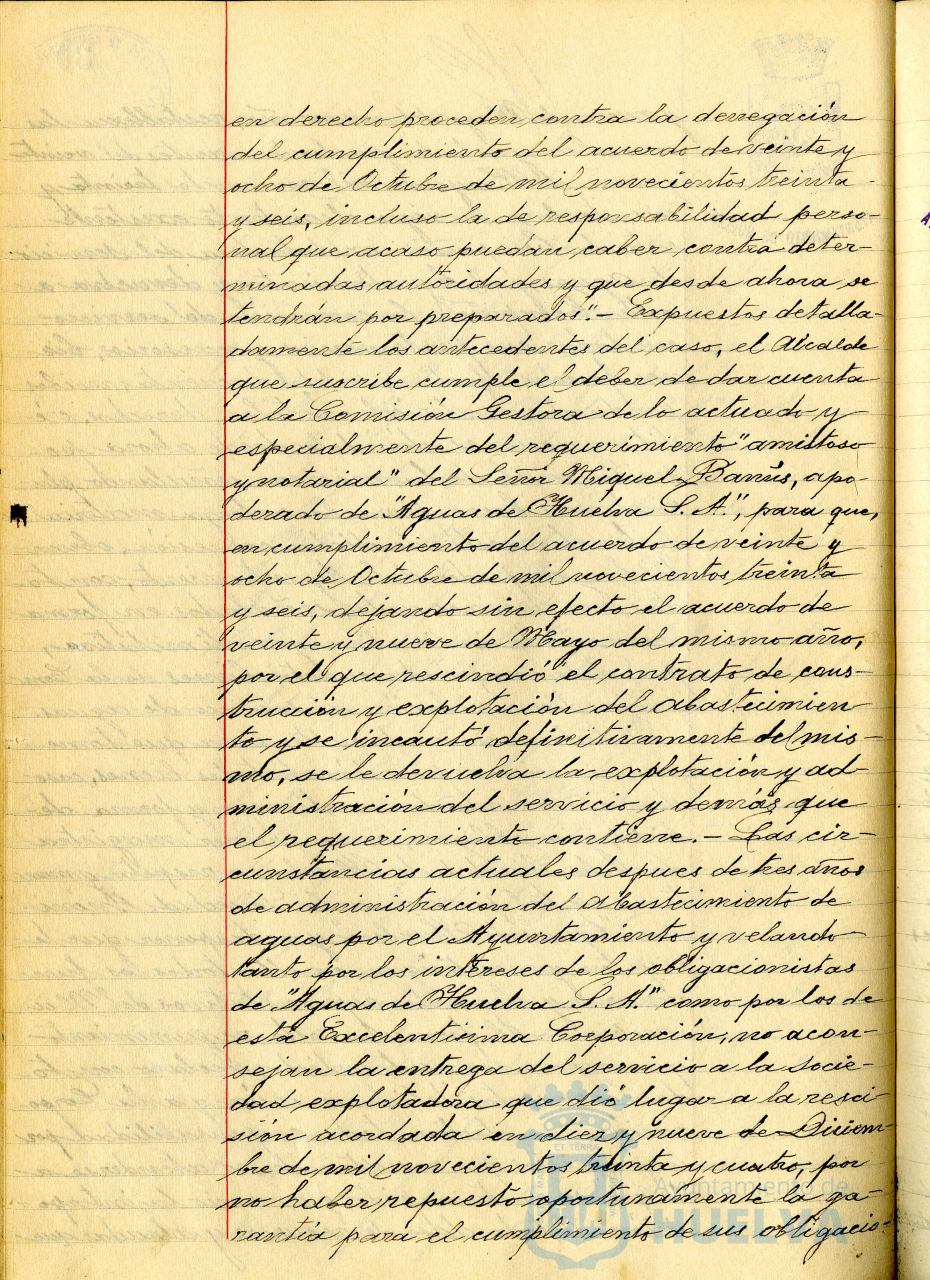 en derecho proceden contra la denegación
del cumplimiento del acuerdo de veinte y
ocho de Octubre de mil novecientos treinta
y seis, incluso la de responsabilidad perso-
nal que acaso puedan caber contra deter-
minadas autoridades y que desde ahora se
tendrán por preparados".- Expuestos detalla-
damente los antecedentes del caso, el Alcalde
que suscribe cumple el deber de dar cuenta
a la Comisión Gestora de lo actuado y
especialmente del requerimiento "amistoso
y notarial" del Señor Miquel y Banús, apo-
derado de "Aguas de Huelva S. A.", para que,
en cumplimiento del acuerdo de veinte y
ocho de Octubre de mil novecientos treinta
y seis, dejando sin efecto el acuerdo de
veinte y nueve de Mayo del mismo año,
por el que rescindió el contrato de cons-
trucción y explotación del abastecimien-
to y se incautó definitivamente del mis-
mo, se le devuelva la explotación y ad-
ministración del servicio y demás que
el requerimiento contiene.- Las cir-
cunstancias actuales despues de tres años
de administración del abastecimiento de
aguas por el Ayuntamiento y velando
tanto por los intereses de los obligacionistas
de "Aguas de Huelva S. A." como por los de
esta Excelentisima Corporación, no acon-
sejan la entrega del servicio a la socie-
dad explotadora que dió lugar a la resci
sión acordada en diez y nueve de Diciem-
bre de mil novecientos treinta y cuatro, por
no haber repuesto oportunamente la ga-
rantía para el cumplimiento de sus obligacio-
Ayuntamiento de
HUELVA